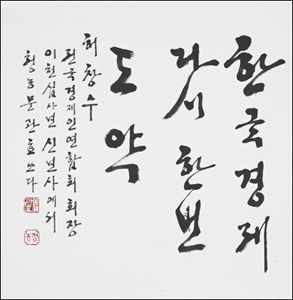 한국경제
다시 한번
도약
허창수
전국경제인연합회 회장
이천십사년 신년사에서
청농 문관효 쓰다